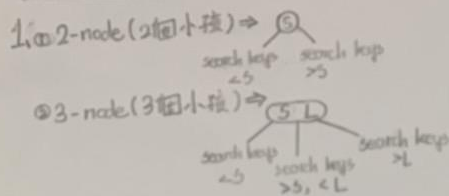 1.① 2-node(2個小孩)⇒ S
search keys search keys
<S >S
② 3-node(3個小孩)⇒ S L
search keys search keys search keys
<S >S, <L >L